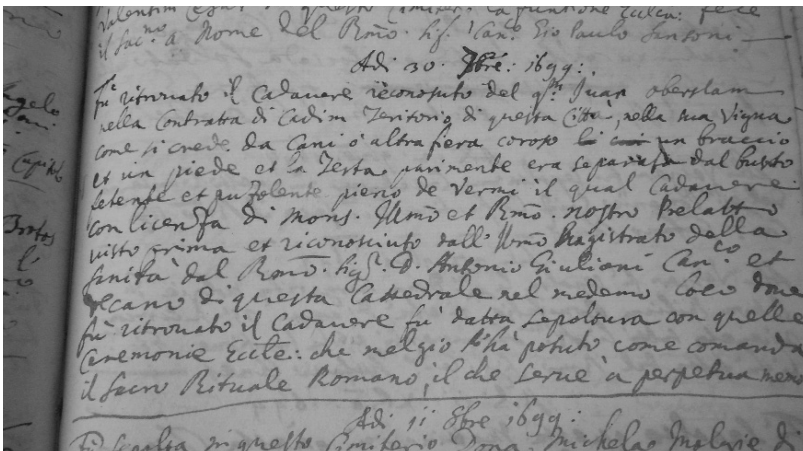 Valentin questo Cimiter: la funzione fece
il Sac.no à Nome del Rmo. Sig. Can.co Gio Paulo Santoni.
Adi 30. 7bre: 1699:
Fu ritrouato il Cadauere reconosuto del qm Juan oberstam
nella Contratta di Cadim Teritorio di questa Città, nella sua Vigna
come si crede da Cani ò altra fiera coroso li un braccio
et un piede et la Testa parimente era separata dal busto
fetente et puzolente pieno de Vermi il qual Cadauere
con licenza di Mons. Illmo et Rmo. nostro Prelatto
uisto prima et riconosciuto dall' Illmo Magistrato della
Sanità dal Rmo. Sigr. D. Antonio Giuliani Can.co et
Decano di questa Cattedrale nel medemo loco doue
fù ritrouato il Cadauere fù datta sepoltura con quelle
Ceremonie Eccle: che melgio si hà potuto come comanda
il Sacro Rituale Romano, il che serue à perpetua memo
Adi 11 8bre 1699:
Fù sepolta in questo Cimiterio Dona Michela di
Angelo
Capitolo